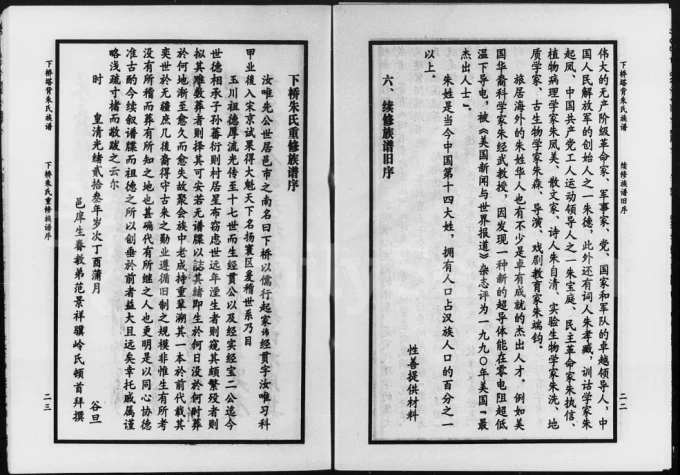 下桥塔背朱氏族谱
续修族谱旧序
二二
伟大的无产阶级革命家、军事家、党、国家和军队的卓越领导人，中
国人民解放军的创始人之一朱德，此外还有词人朱孝臧，训诂学家朱
起凤、中国共产党工人运动领导人之一朱宝庭、民主革命家朱执信、
植物病理学家朱凤美、散文家、诗人朱自清、实验生物学家朱洗、地
质学家、古生物学家朱森、导演、戏剧教育家朱端钧。
旅居海外的朱姓华人也有不少是卓有成就的杰出人才。例如美
国华裔科学家朱经武教授，因发现一种新的超导体能在零电阻超低
温下导电，被《美国新闻与世界报道》杂志评为一九九〇年美国“最
杰出人士”。
朱姓是当今中国第十四大姓，拥有人口占汉族人口的百分之一
以上。
性善提供材料
六、续修族谱旧序
下桥朱氏重修族谱序
汝唯先公世居邑市之南名曰下桥以儒行起家讳经贯字汝唯习科
甲业後入宋京试果得大魁天下名扬寰区爰稽世系乃目
玉川祖德厚流光传至十七世而生经贯公以及经实经宝二公迄今
世德相承子孙蕃衍则村居星布窃虑世远年湮生者则窥其颇繁殁者则
拟其难数葬者则择其可安若无谱牒以誌其绪即生於何日没於何时葬
於何地渐至愈久而愈失故聚会族中老成持重辈溯其一本於前代载其
奕世於无疆庶几後裔得守古来之勋业遵循旧制之规模非惟生有所考
没有所稽而葬有所知之地也甚确代有所继之人也更明是以同心协德
准古酌今续叙谱牒而祖德之所以创垂於前者益大且远矣幸托戚属谨
略浅疏寸楮而敬跋之云尔
时 皇清光绪贰拾叁年岁次丁酉蒲月 谷旦
邑庠生眷教弟范景祥骥岭氏领首拜撰
下桥塔背朱氏族谱
下桥朱氏重修族谱序
二三